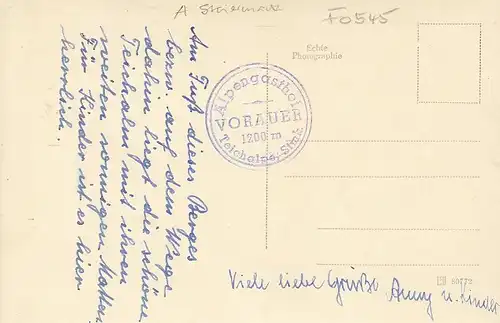 A Steiermark
F0545
Echte
Photographie
Alpengasthof
VORAUER
1200 m
Teichalpe, Stmk.
Am Fuß dieses Berges
bezw. auf dem Wege
dahin liegt die schöne
Teichalm mit ihren
weiten sonnigen Matten
Für Kinder ist es hier
herrlich.
Viele liebe Grüße
Anny u. Kinder
80772